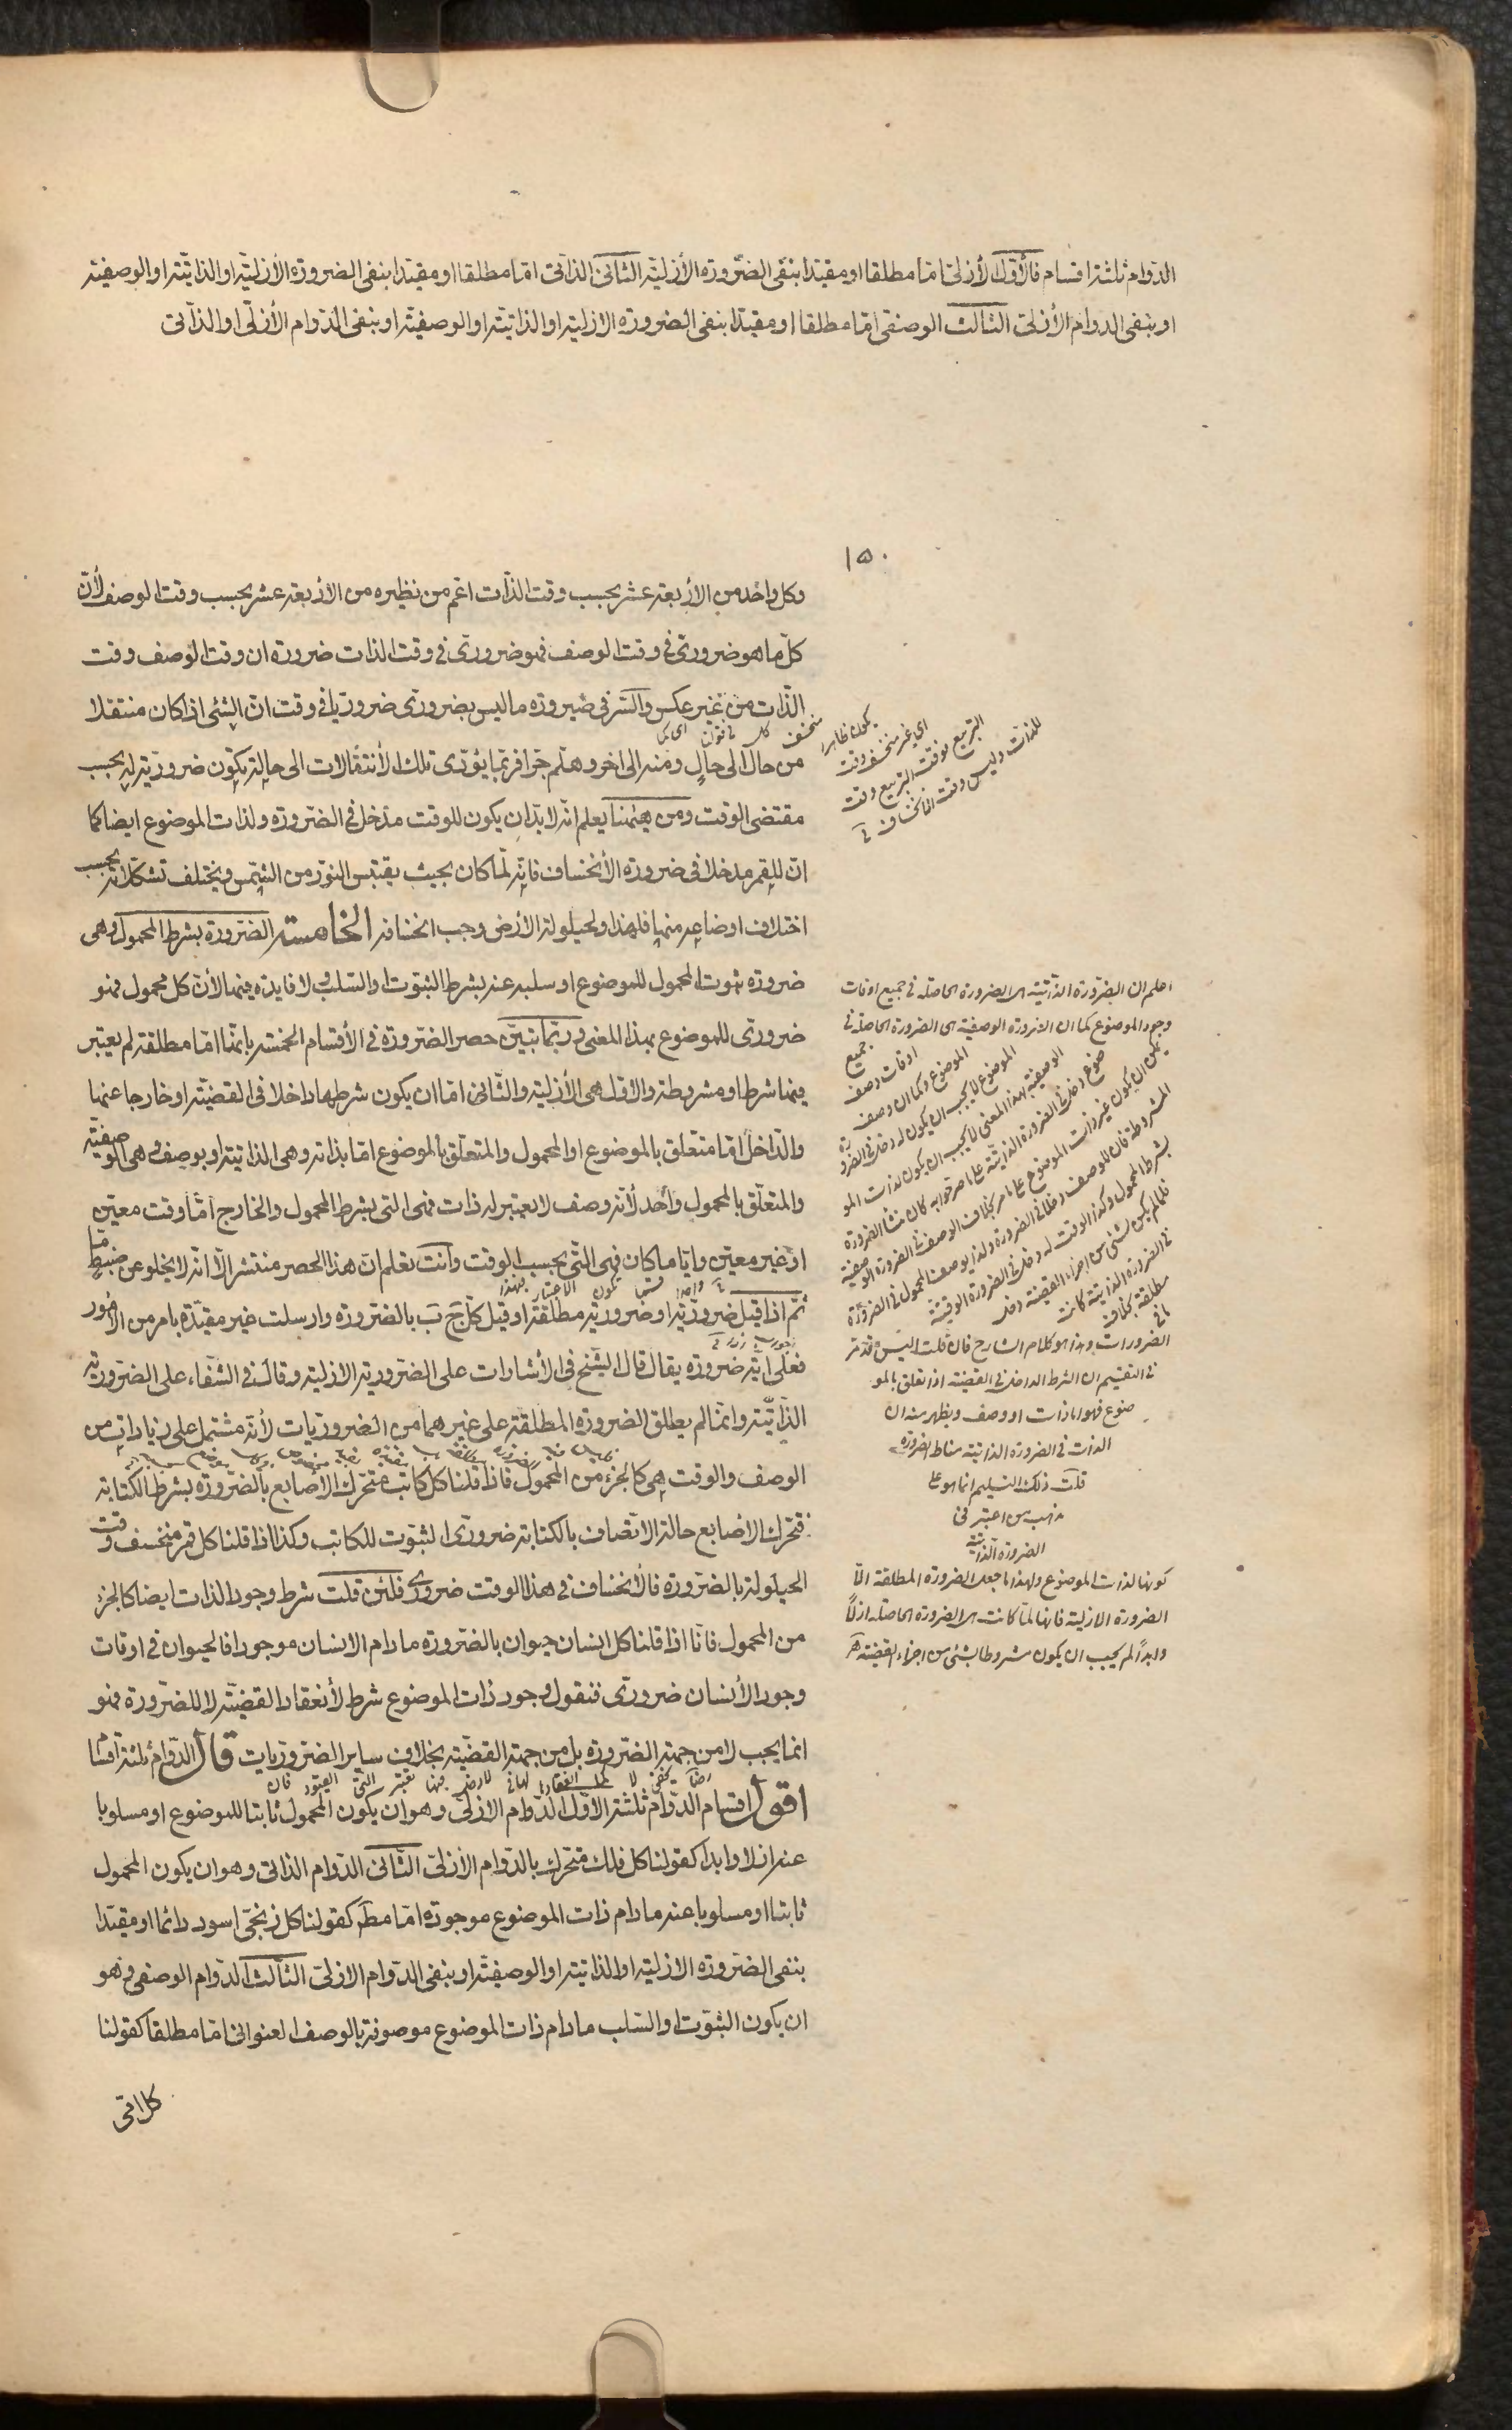 الدوام ثلثة اقسام فالأول الأزلي امّا مطلقا او مقيدا بنفى الضرورة الأزلية الثانى الذاتى امّا مطلقا او مقيدا بنفى الضرورة الأزلية او الذاتية او الوصفية
او بنفى الدوام الأزلى الثالث الوصفى امّا مطلقا او مقيدا بنفى الضرورة الازلية او الذاتية او الوصفية او بنفى الدوام الأزلى او الذاتى
١٥٠
وكل واحد من الأربعة عشر بحسب وقت الذات اعم من نظيره من الأربعة عشر بحسب وقت الوصف لأنّ
كل ما هو ضرورى فى وقت الوصف فهو ضرورى فى وقت الذات ضرورة ان وقت الوصف وقت
الذات من غير عكس والسر فى صيرورة ما ليس بضرورى ضروريا فى وقت انّ الشئ اذا كان منتقلا
من حال الى حال ومنه الى اخر وهلم جرا فربما يؤدى تلك الأنتقالات الى حالة يكون ضرورية له بحسب
مقتضى الوقت ومن ههنا يعلم انه لابد ان يكون للوقت مدخل فى الضرورة ولذات الموضوع ايضا كما
ان للقمر مدخلا فى ضرورة الأنخساف فانه لما كان بحيث يقتبس النور من الشمس ويختلف تشكلاته بحسب
اختلاف اوضاعه منها فلهذا ولحيلولة الأرض وجب انخسافه الخامسة الضرورة بشرط المحمول وهى
ضرورة ثبوت المحمول للموضوع او سلبه عنه بشرط الثبوت او السلب ولا فايدة فيها لأن كل محمول فهو
ضرورى للموضوع بهذا المعنى وربما تبين حصر الضرورة فى الأقسام الخمسة بانها امّا مطلقة لم يعتبر
فيها شرط او مشروطة والاول هى الأزلية والثانى امّا ان يكون شرطها داخلا فى القضية او خارجا عنها
والداخل امّا متعلق بالموضوع او المحمول والمتعلق بالموضوع امّا بذاته وهى الذاتية او بوصفه وهى الوصفية
والمتعلق بالمحمول واحد لأنه وصف لا يعتبر له ذات فهى التى بشرط المحمول والخارج امّا وقت معين
او غير معين وايا ما كان فهى التى بحسب الوقت وانت تعلم ان هذا الحصر منتشر الّا انه لا يخلو عن ضبط ما
ثم اذا قيل ضرورية او ضرورية مطلقة او قيل كل ج ب بالضرورة وارسلت غير مقيدة بامر من الأمور
فعلى اية ضرورة يقال قال الشيخ فى الأشارات على الضرورية الازلية وقال فى الشفاء على الضرورية
الذاتية وانما لم يطلق الضرورة المطلقة على غيرهما من الضروريات لأنه مشتمل على زيادات من
الوصف والوقت هى كالجزء من المحمول فاذا قلنا كل كاتب متحرك الأصابع بالضرورة بشرط الكتابة
فتحرك الاصابع حالة الاتصاف بالكتابة ضرورى الثبوت للكاتب وكذا اذا قلنا كل قمر منخسف وقت
الحيلولة بالضرورة فالأنخساف فى هذا الوقت ضرورى فلئن قلت شرط وجود الذات ايضا كالجزء
من المحمول فانا اذا قلنا كل انسان حيوان بالضرورة ما دام الانسان موجودا فالحيوان فى اوقات
وجود الأنسان ضرورى فنقول وجود ذات الموضوع شرط لأنعقاد القضية لا للضرورة فهو
انما يجب لا من جهة الضرورة بل من جهة القضية بخلاف ساير الضروريات قال الدوام ثلثة اقسا
اقول اقسام الدوام ثلثة الاول الدوام الازلى وهو ان يكون المحمول ثابتا للموضوع او مسلوبا
عنه ازلا وابدا كقولنا كل فلك متحرك بالدوام الأزلى الثانى الدوام الذاتى وهو ان يكون المحمول
ثابتا او مسلوبا عنه ما دام ذات الموضوع موجودة امّا مطـ كقولنا كل زنجى اسود دائما او مقيدا
بنفى الضرورة الازلية او الذاتية او الوصفية او بنفى الدوام الازلى الثالث الدوام الوصفى وهو
ان يكون الثبوت او السلب ما دام ذات الموضوع موصوفة بالوصف العنوانى امّا مطلقا كقولنا
اى غير منخسف وقت
التربيع فوقت التربيع وقت
للذات وليس وقت الانخساف
اعلم ان الضرورة الذاتية هى الضرورة الحاصلة فى جميع اوقات
وجود الموضوع كما ان الضرورة الوصفية هى الضرورة الحاصلة فى
جميع
اوقات وصف
الموضوع وكما ان وصف
الموضوع لا يجب ان يكون له دخل فى الضرورة
الوصفية بهذا المعنى لا يجب ان يكون لذات المو
ضوع دخل فى الضرورة الذاتية
الضرورات وهذا هو كلام الشارح فان قلت اليس قد مر
فى التقسيم ان الشرط الداخل فى القضية اذا تعلق بالمو
ضوع فهو اما ذات او وصف ويظهر منه ان
الذات فى الضرورة الذاتية مناط الضرورة
قلت ذلك التسليم انما هو على
مذهب من اعتبر فى
الضرورة الذاتية
كونها لذات الموضوع ولهذا ما جعل الضرورة المطلقة الّا
الضرورة الازلية فانها لما كانت هى الضرورة الحاصلة ازلاً
وابداً لم يجب ان يكون مشروطا بشئ من اجزاء القضية